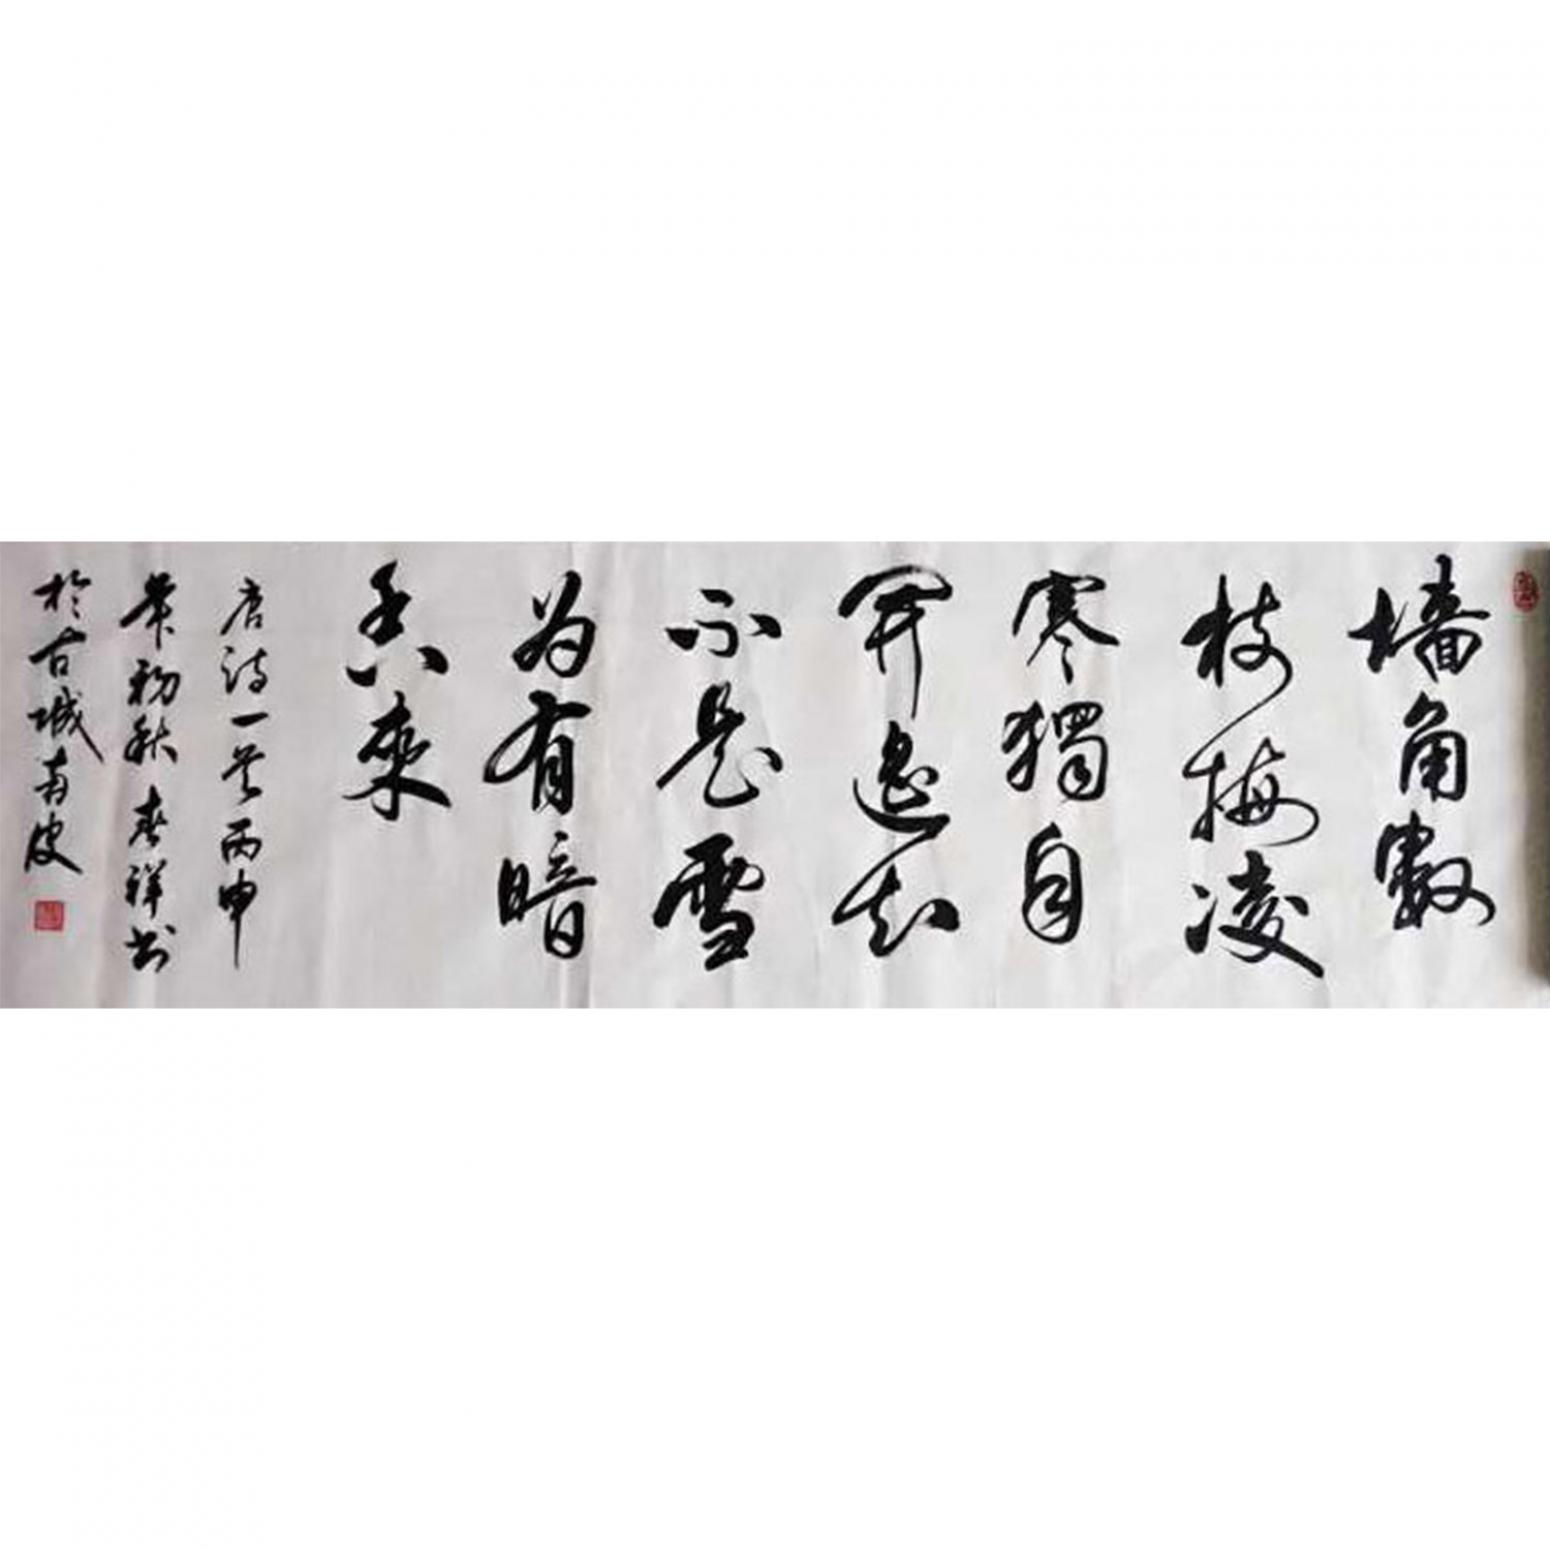 墙角數
枝梅凌
寒獨自
開遥知
不是雪
为有暗
香來
唐诗一首丙申
年初秋春祥书
於古城南皮